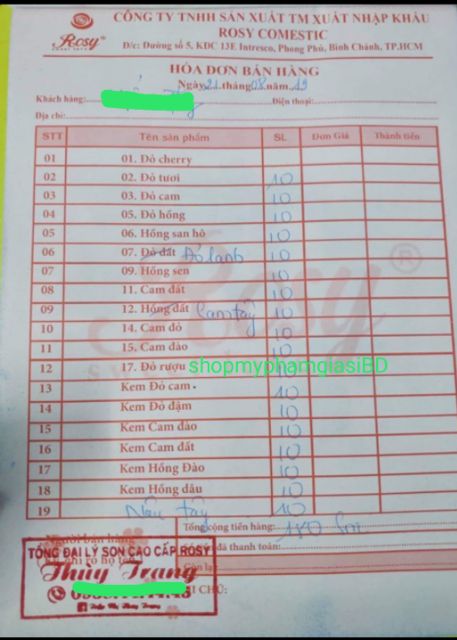 CÔNG TY TNHH SẢN XUẤT TM XUẤT NHẬP KHẨU
ROSY COMESTIC
Rosy
Đ/c: Đường số 5, KDC 13E Intresco, Phong Phú, Bình Chánh, TP.HCM
HÓA ĐƠN BÁN HÀNG
Ngày 21 tháng 08 năm 19
Khách hàng: Điện thoại:
Địa chỉ:
STT Tên sản phẩm SL Đơn Giá Thành tiền
01 01. Đỏ cherry
02 02. Đỏ tươi 10
03 03. Đỏ cam 10
04 05. Đỏ hồng 10
05 06. Hồng san hô 10
06 07. Đỏ đất Đỏ lạnh 10
07 09. Hồng sen 10
08 11. Cam đất 10
09 12. Hồng đất Cam tây 10
10 14. Cam đỏ 10
11 15. Cam đào 10
12 17. Đỏ rượu 10
shopmyphamgiasiBD
13 Kem Đỏ cam 10
14 Kem Đỏ đậm 10
15 Kem Cam đào 10
16 Kem Cam đất 10
17 Kem Hồng Đào 10
18 Kem Hồng dâu 10
19 Nâu tây 10
Tổng cộng tiền hàng: 180 Son
Người bán hàng
đã thanh toán:
Còn lại
TỔNG ĐẠI LÝ SON CAO CẤP ROSY
Thùy Trang
GHI CHÚ: